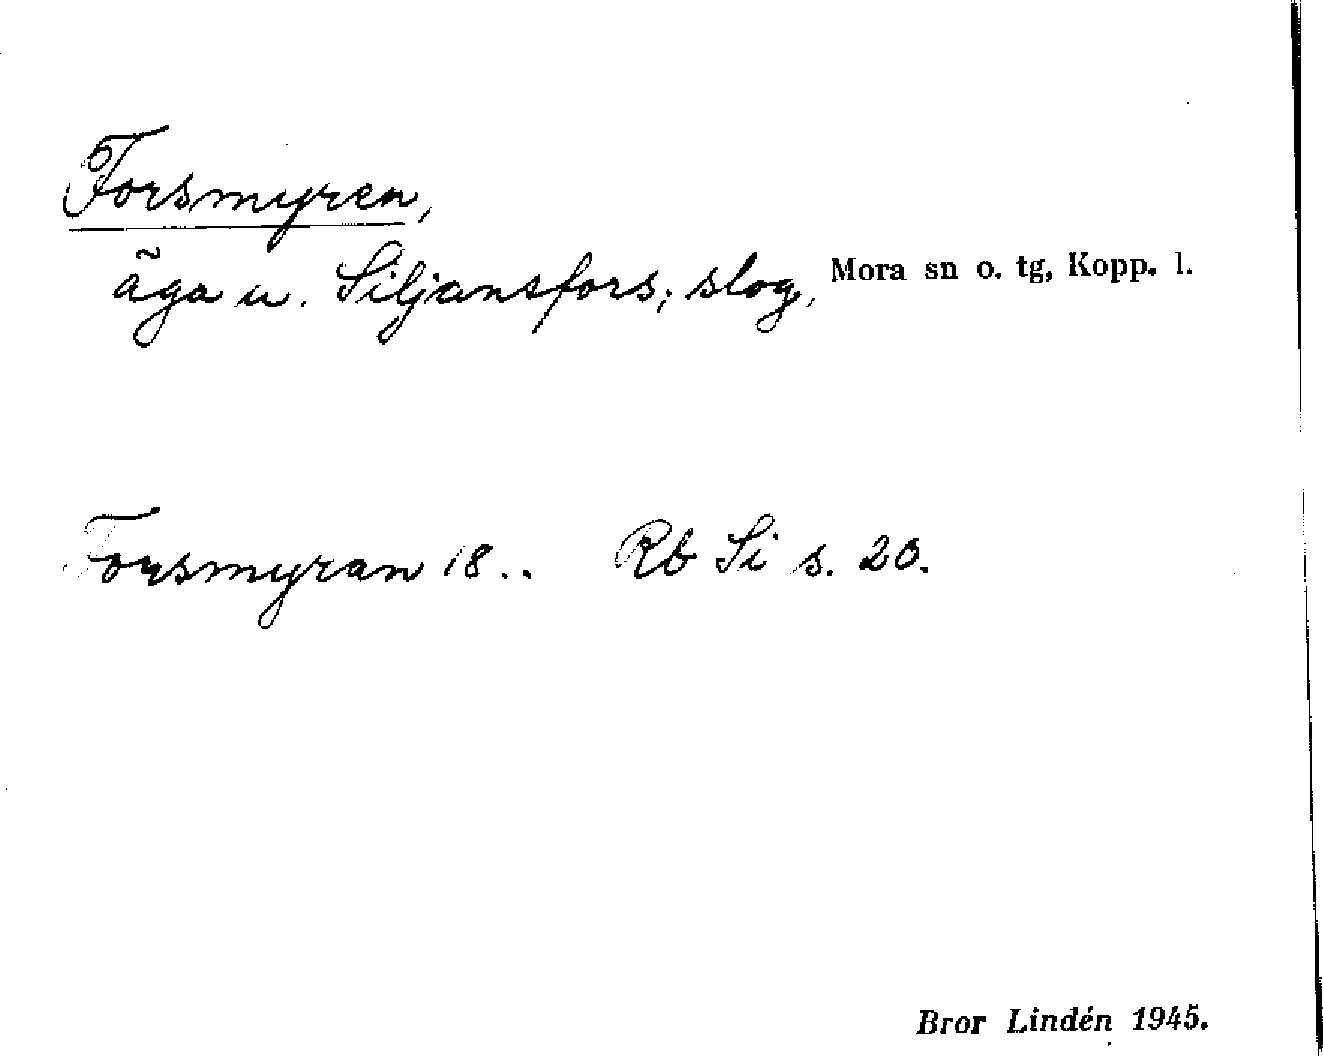 Forsmyren,
äga u. Siljansfors; slog, Mora sn o. tg, Kopp. l.
Forsmyran 18.. Rb Si s. 20.
Bror Lindén 1945.